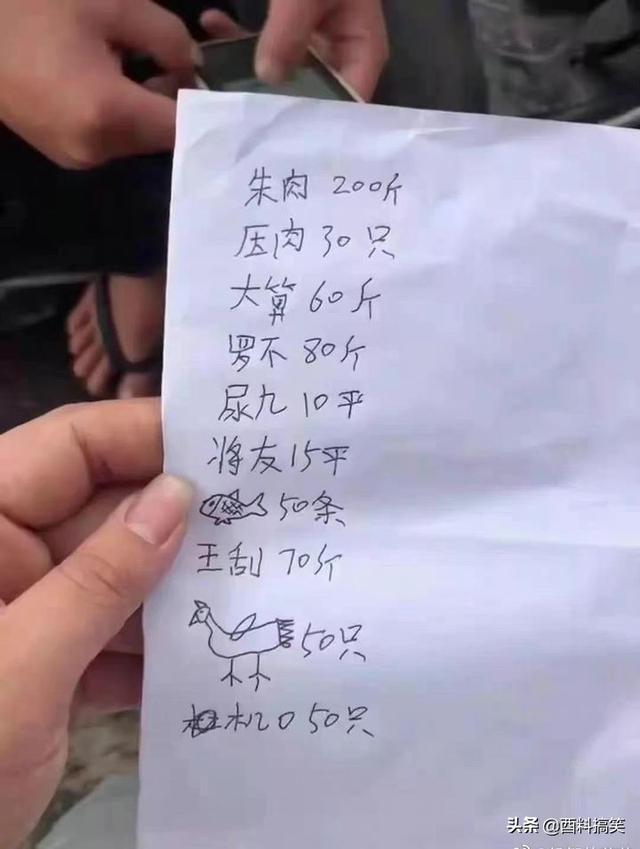 朱肉 200斤
压肉 30只
大算 60斤
罗不 80斤
尿九 10平
将友 15平
50条
王刮 70斤
50只
机0 50只
头条 @酉料搞笑